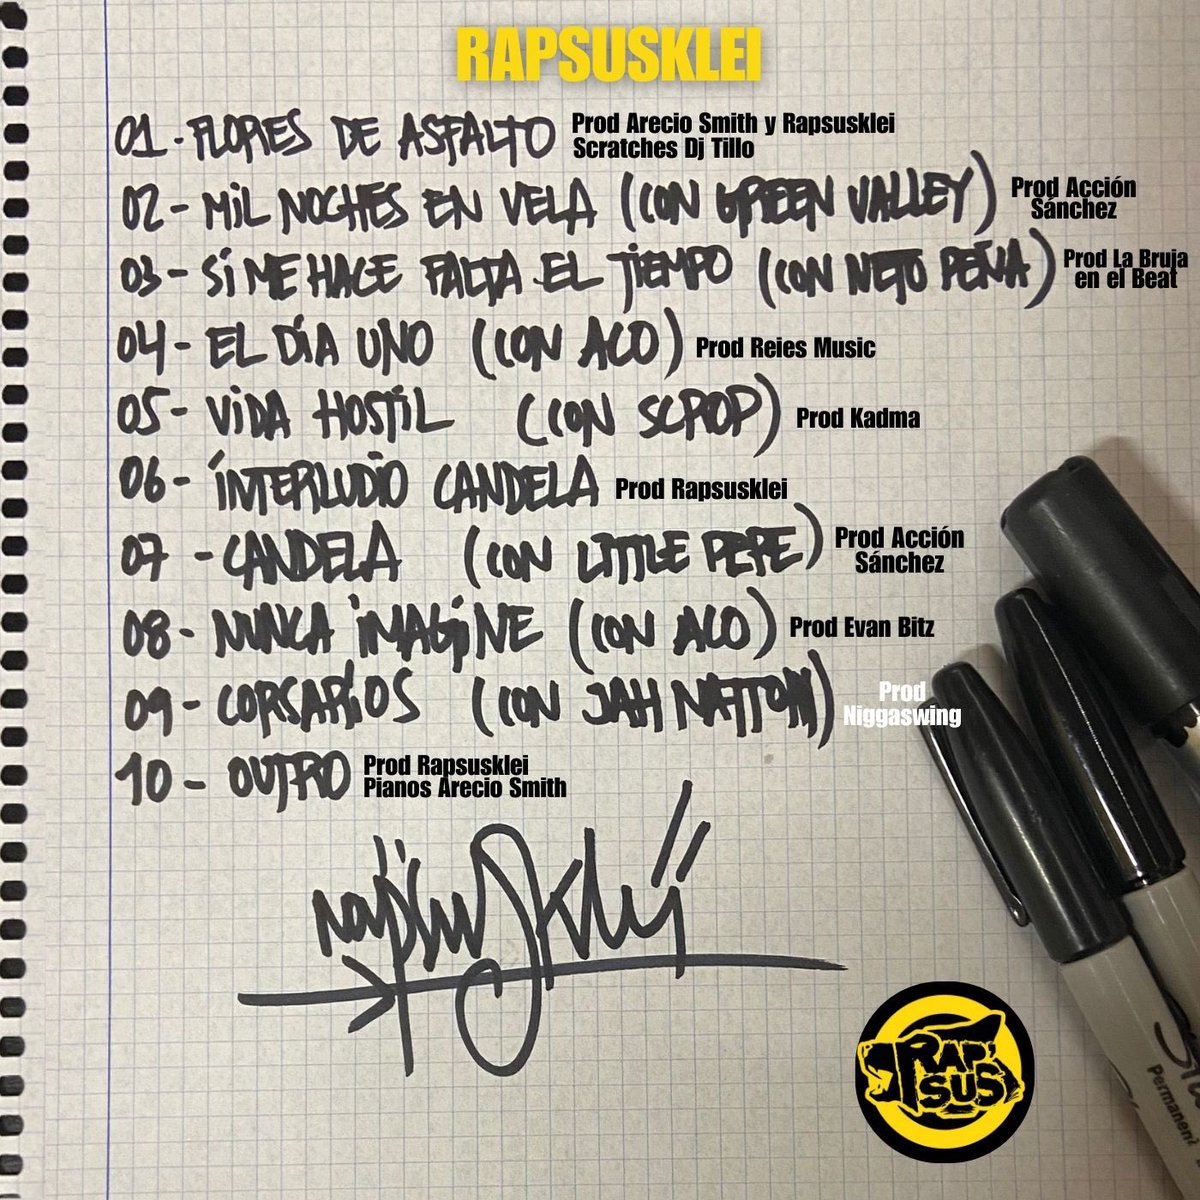 RAPSUSKLEI
01 - FLORES DE ASFALTO Prod Arecio Smith y Rapsusklei
Scratches Dj Tillo
02 - MIL NOCHES EN VELA (CON GREEN VALLEY) Prod Acción
Sánchez
03 - SI ME HACE FALTA EL TIEMPO (CON NETO PEÑA) Prod La Bruja
en el Beat
04 - EL DÍA UNO (CON ACO) Prod Reies Music
05 - VIDA HOSTIL (CON SCPOP) Prod Kadma
06 - INTERLUDIO CANDELA Prod Rapsusklei
07 - CANDELA (CON LITTLE PEPE) Prod Acción
Sánchez
08 - NUNCA IMAGINE (CON ACO) Prod Evan Bitz
09 - CORSARIOS (CON JAH NATTOH) Prod
Niggaswing
10 - OUTRO Prod Rapsusklei
Pianos Arecio Smith
rapsusklei
RAP'
SUS
Permanent